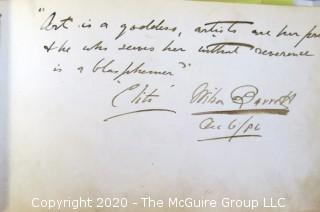 "Art is a goddess, artists are her pr
& he who serves her without reverence
is a blasphemer"
Wilson Barrett
Dec 6/86
Copyright 2020 - The McGuire Group LLC